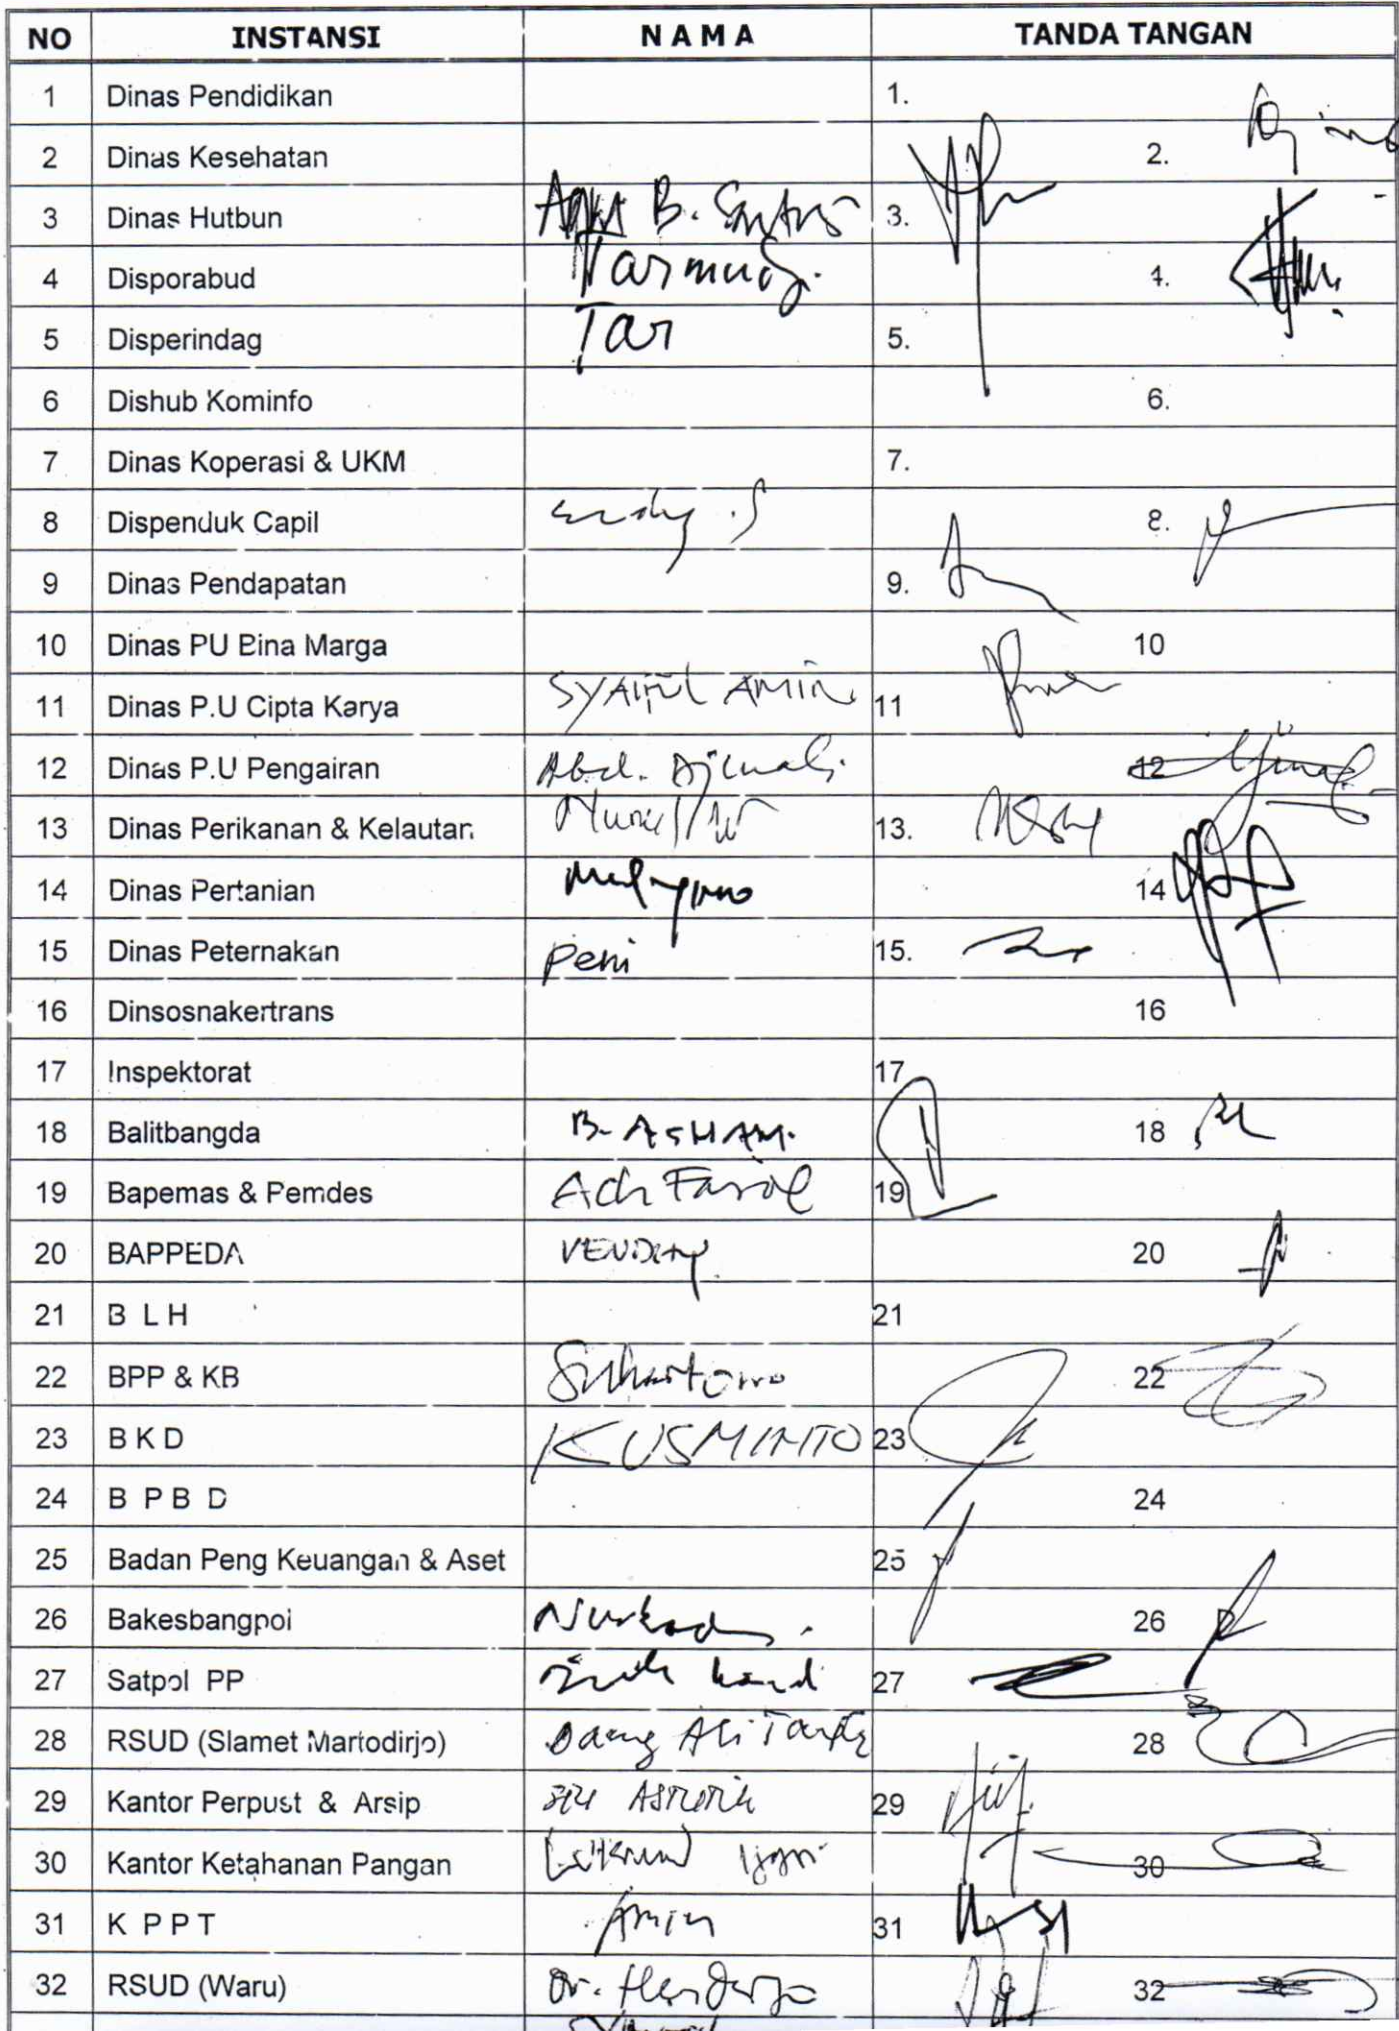 NO INSTANSI N A M A TANDA TANGAN
1 Dinas Pendidikan 1.
2 Dinas Kesehatan 2.
3 Dinas Hutbun B. 3.
4 Disporabud Tarmudji. 4.
5 Disperindag Tar 5.
6 Dishub Kominfo 6.
7 Dinas Koperasi & UKM 7.
8 Dispenduk Capil 8.
9 Dinas Pendapatan 9.
10 Dinas PU Bina Marga 10
11 Dinas P.U Cipta Karya SYAIFUL AMIN. 11
12 Dinas P.U Pengairan Abd. 12
13 Dinas Perikanan & Kelautan 13.
14 Dinas Pertanian 14
15 Dinas Peternakan Peni 15.
16 Dinsosnakertrans 16
17 Inspektorat 17
18 Balitbangda B. ASHAM. 18
19 Bapemas & Pemdes Ach Farid 19
20 BAPPEDA VENDHY 20
21 B L H 21
22 BPP & KB Suhartono 22
23 B K D KUSMINTO 23
24 B P B D 24
25 Badan Peng Keuangan & Aset 25
26 Bakesbangpol 26
27 Satpol PP 27
28 RSUD (Slamet Martodirjo) Daeng Ali 28
29 Kantor Perpust & Arsip 29
30 Kantor Ketahanan Pangan 30
31 K P P T Amin 31
32 RSUD (Waru) Dr. 32